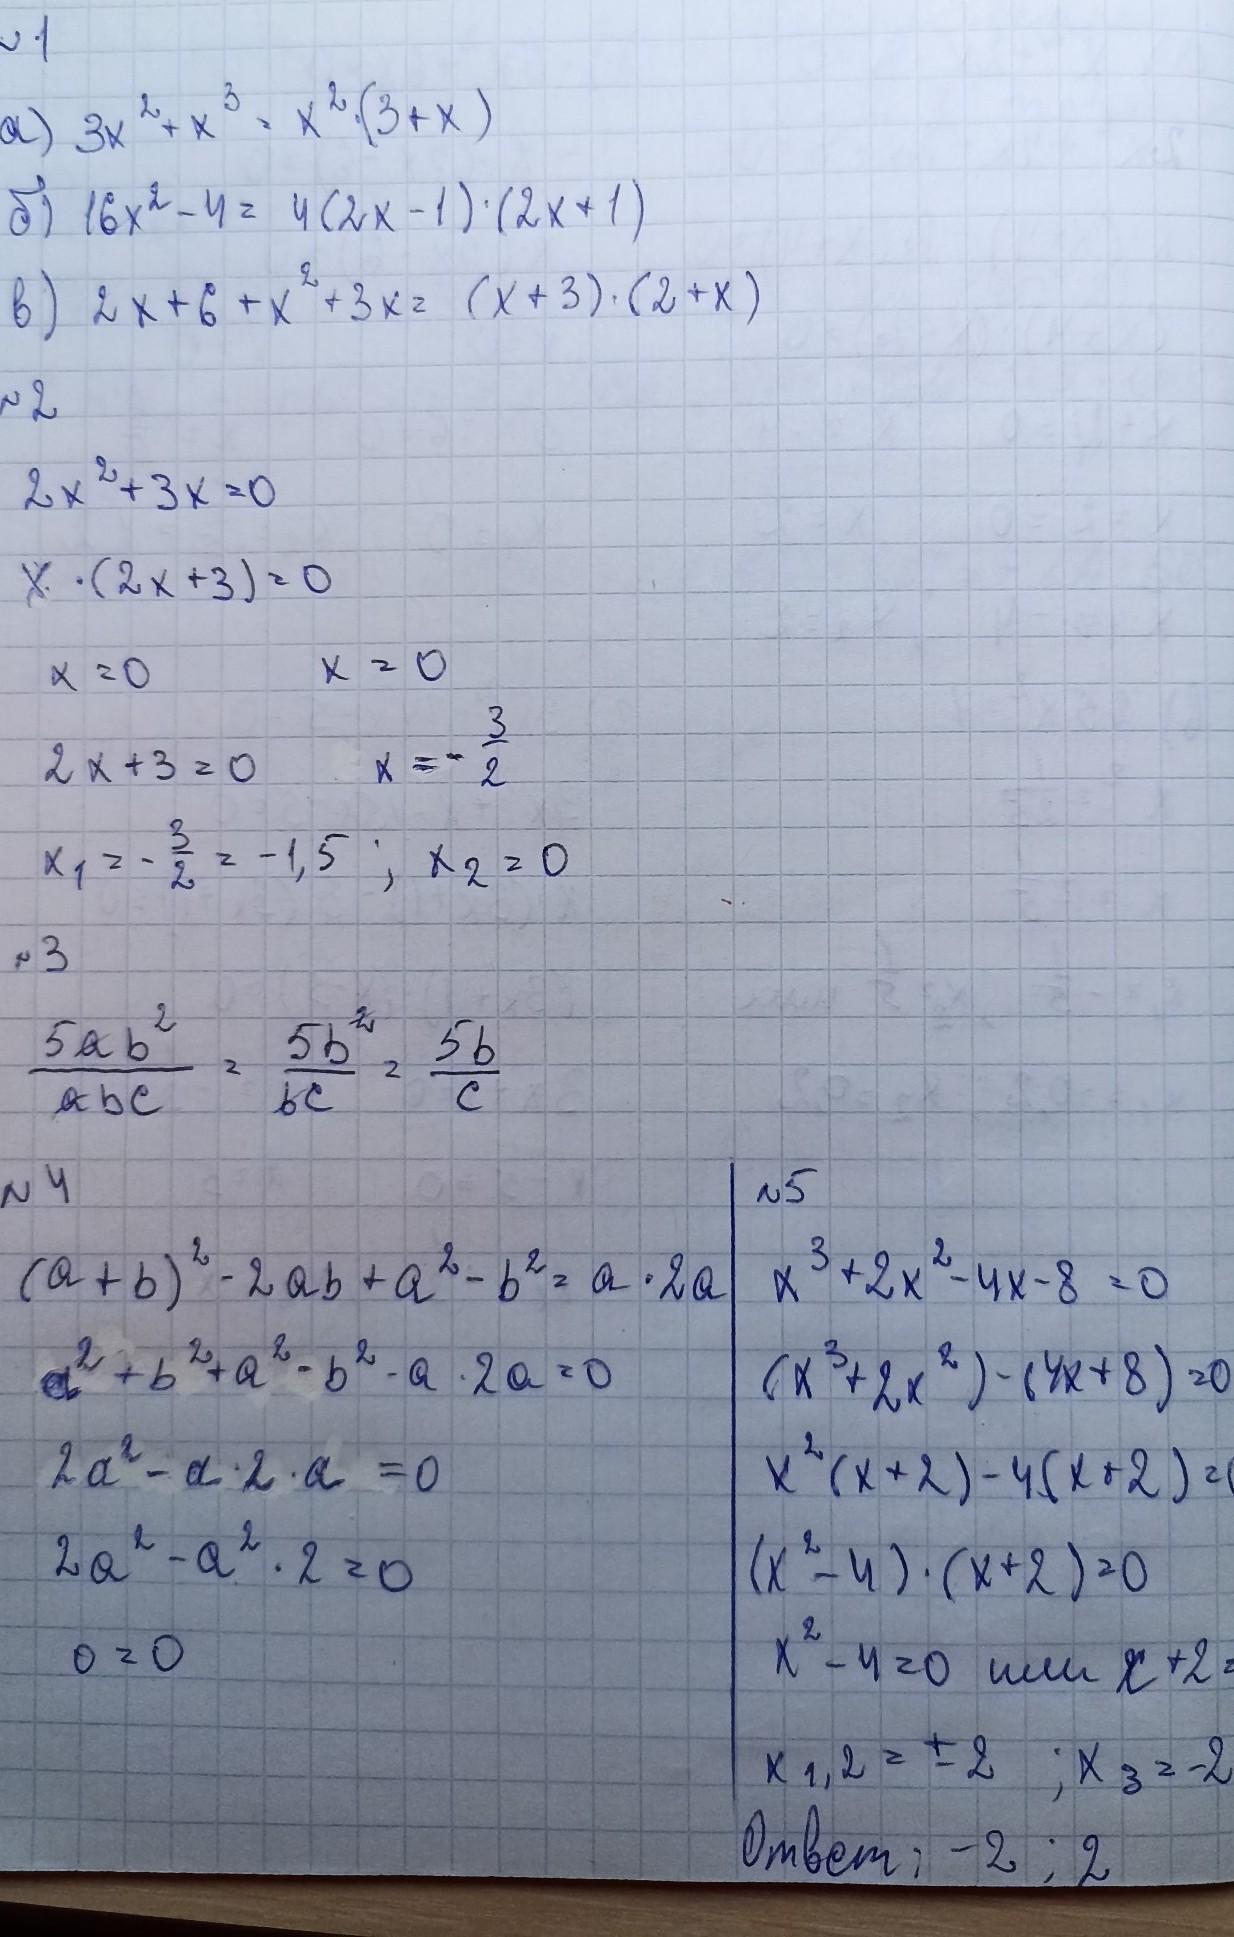 ~1
а) 3x² + x³ = x²·(3+x)
б) 16x² - 4 = 4(2x-1)·(2x+1)
в) 2x+6+x²+3x= (x+3)·(2+x)
~2
2x²+3x=0
x·(2x+3)=0
x=0 x=0
2x+3=0 x=-3/2
x₁=-3/2=-1,5 ; x₂=0
~3
5ab²/abc = 5b²/bc = 5b/c
~4
(a+b)²-2ab+a²-b²=a·2a
a²+b²+a²-b²-a·2a=0
2a²-a·2·a=0
2a²-a²·2=0
0=0
~5
x³+2x²-4x-8=0
(x³+2x²)-(4x+8)=0
x²(x+2)-4(x+2)=0
(x²-4)·(x+2)=0
x²-4=0 или x+2=
x₁,₂=±2 ; x₃=-2
Ответ: -2 ; 2